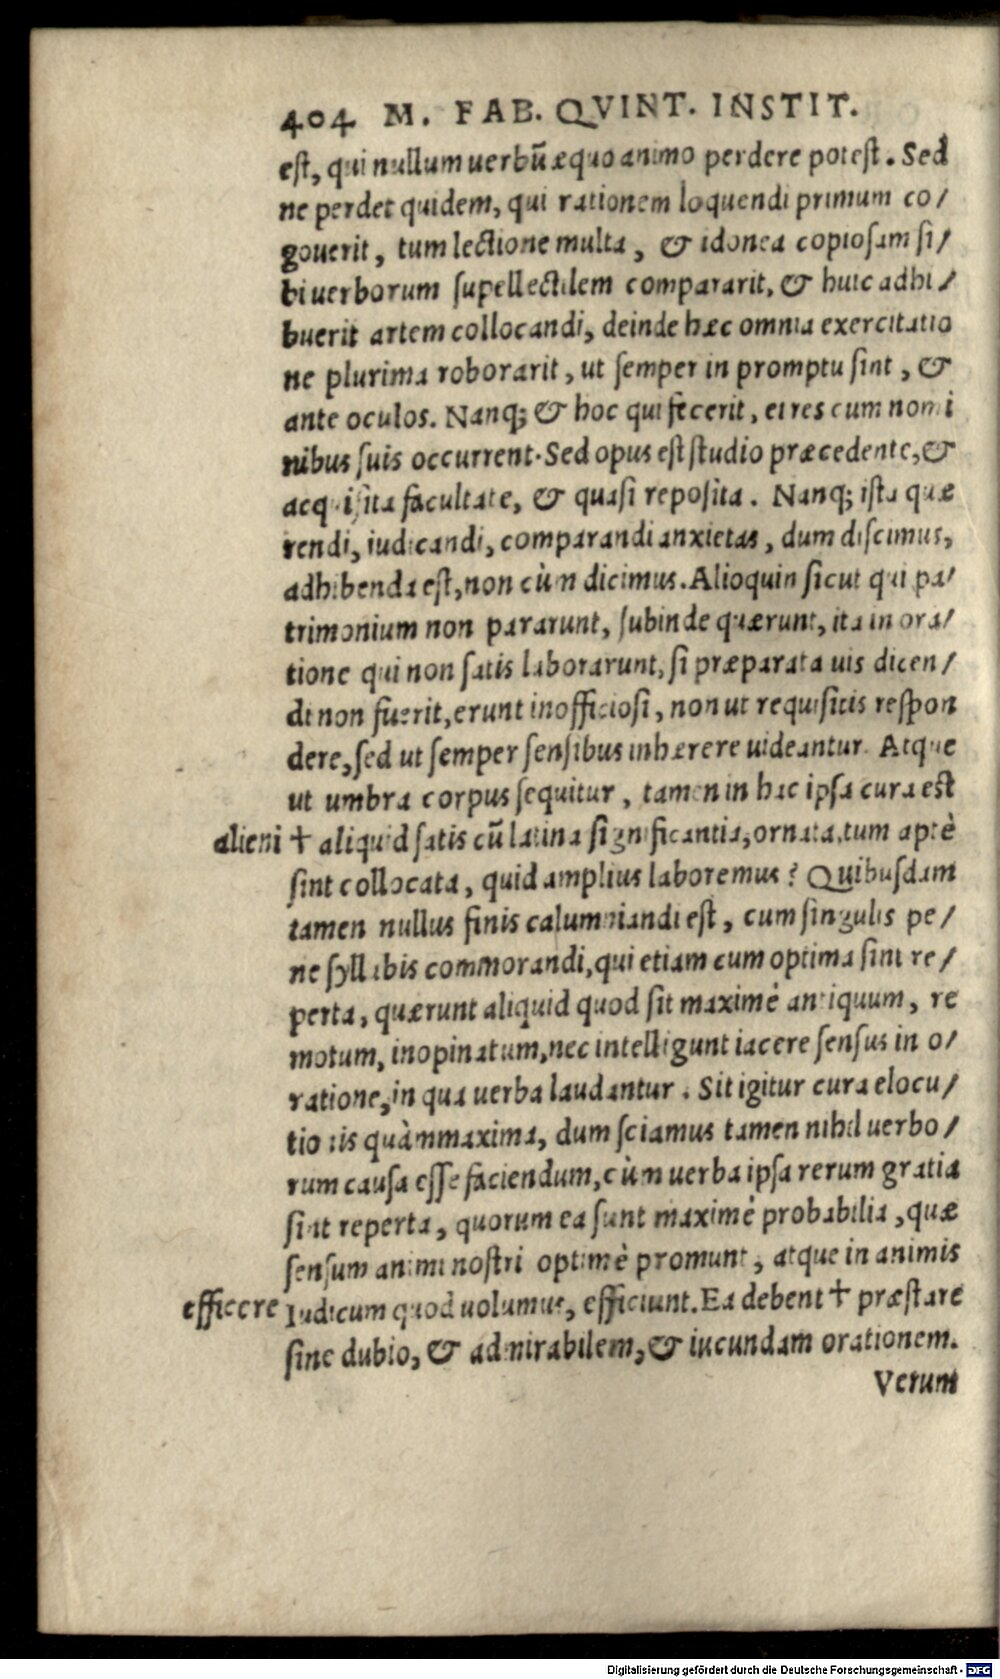 404 M. FAB. QVINT. INSTIT.
est, qui nullum uerbū æquo animo perdere potest. Sed
ne perdet quidem, qui rationem loquendi primum co/
gouerit, tum lectione multa, & idonea copiosam si/
bi uerborum supellectilem compararit, & huic adhi/
buerit artem collocandi, deinde hæc omnia exercitatio
ne plurima roborarit, ut semper in promptu sint, &
ante oculos. Nanq; & hoc qui fecerit, ei res cum nomi
nibus suis occurrent. Sed opus est studio præcedente, &
acquisita facultate, & quasi reposita. Nanq; ista quæ
rendi, iudicandi, comparandi anxietas, dum discimus,
adhibenda est, non cùm dicimus. Alioquin sicut qui pa/
trimonium non pararunt, subinde quærunt, ita in ora/
tione qui non satis laborarunt, si præparata uis dicen/
di non fuerit, erunt inofficiosi, non ut requisitis respon
dere, sed ut semper sensibus inhærere uideantur. Atque
ut umbra corpus sequitur, tamen in hac ipsa cura est
alieni † aliquid satis cū latina significantia, ornata, tum aptè
sint collocata, quid amplius laboremus? Quibusdam
tamen nullus finis calumniandi est, cum singulis pe/
ne syllabis commorandi, qui etiam cum optima sint re/
perta, quærunt aliquid quod sit maximè antiquum, re
motum, inopinatum, nec intelligunt iacere sensus in o/
ratione, in qua uerba laudantur. Sit igitur cura elocu/
tionis quàm maxima, dum sciamus tamen nihil uerbo/
rum causa esse faciendum, cùm uerba ipsa rerum gratia
sint reperta, quorum ea sunt maximè probabilia, quæ
sensum animi nostri optimè promunt, atque in animis
efficere Iudicum quod uolumus, efficiunt. Ea debent † præstare
sine dubio, & admirabilem, & iucundam orationem.
Verum
Digitalisierung gefördert durch die Deutsche Forschungsgemeinschaft - DFG